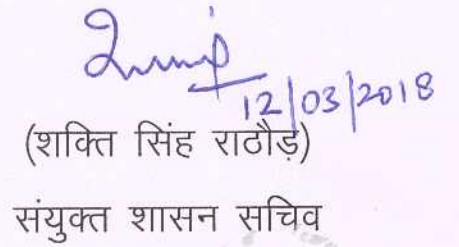 12/03/2018
(शक्ति सिंह राठौड़)
संयुक्त शासन सचिव